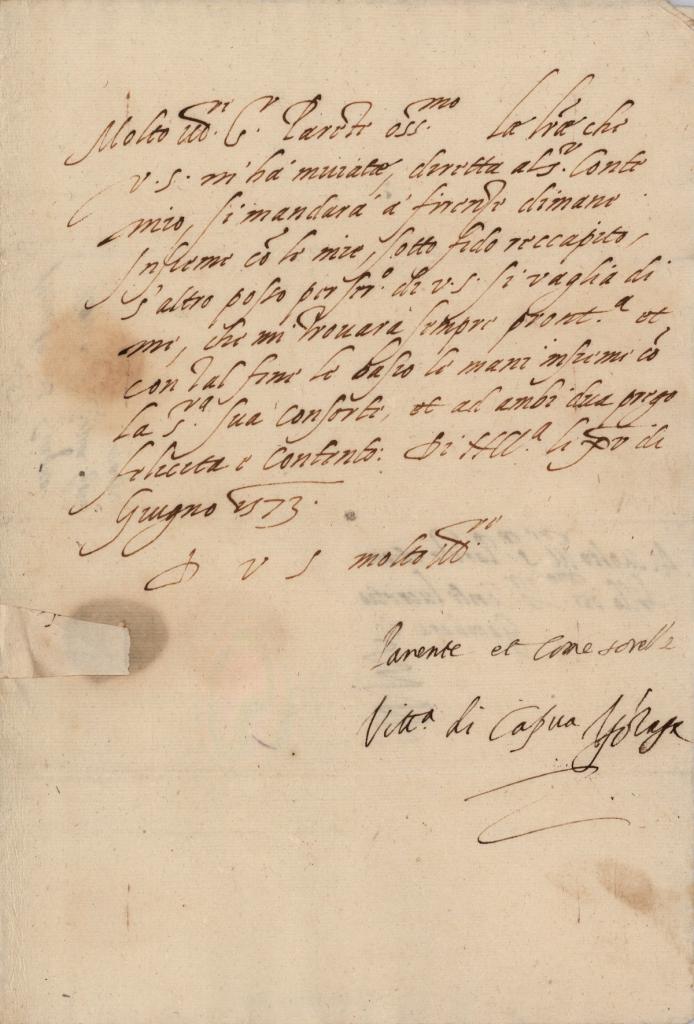 Molto Ill.re S.r Parente oss.mo La lr̃a che
V. S. m'ha inviata, diretta al S.r Conte
mio, si mandarà à firenze dimane
insieme cõ le mie, sotto fido reccapito,
s'altro posso per ser.o di V. S. si vaglia di
me, che mi trouarà sempre pront.a et
con tal fine le bascio le mani insieme cõ
la S.ra sua Consorte, et ad ambi dua prego
felicità e Contento: Di li XV di
Giugno 1573.
D V S molto Ill.re
Parente et Come sorella
Vitt.a di Capua